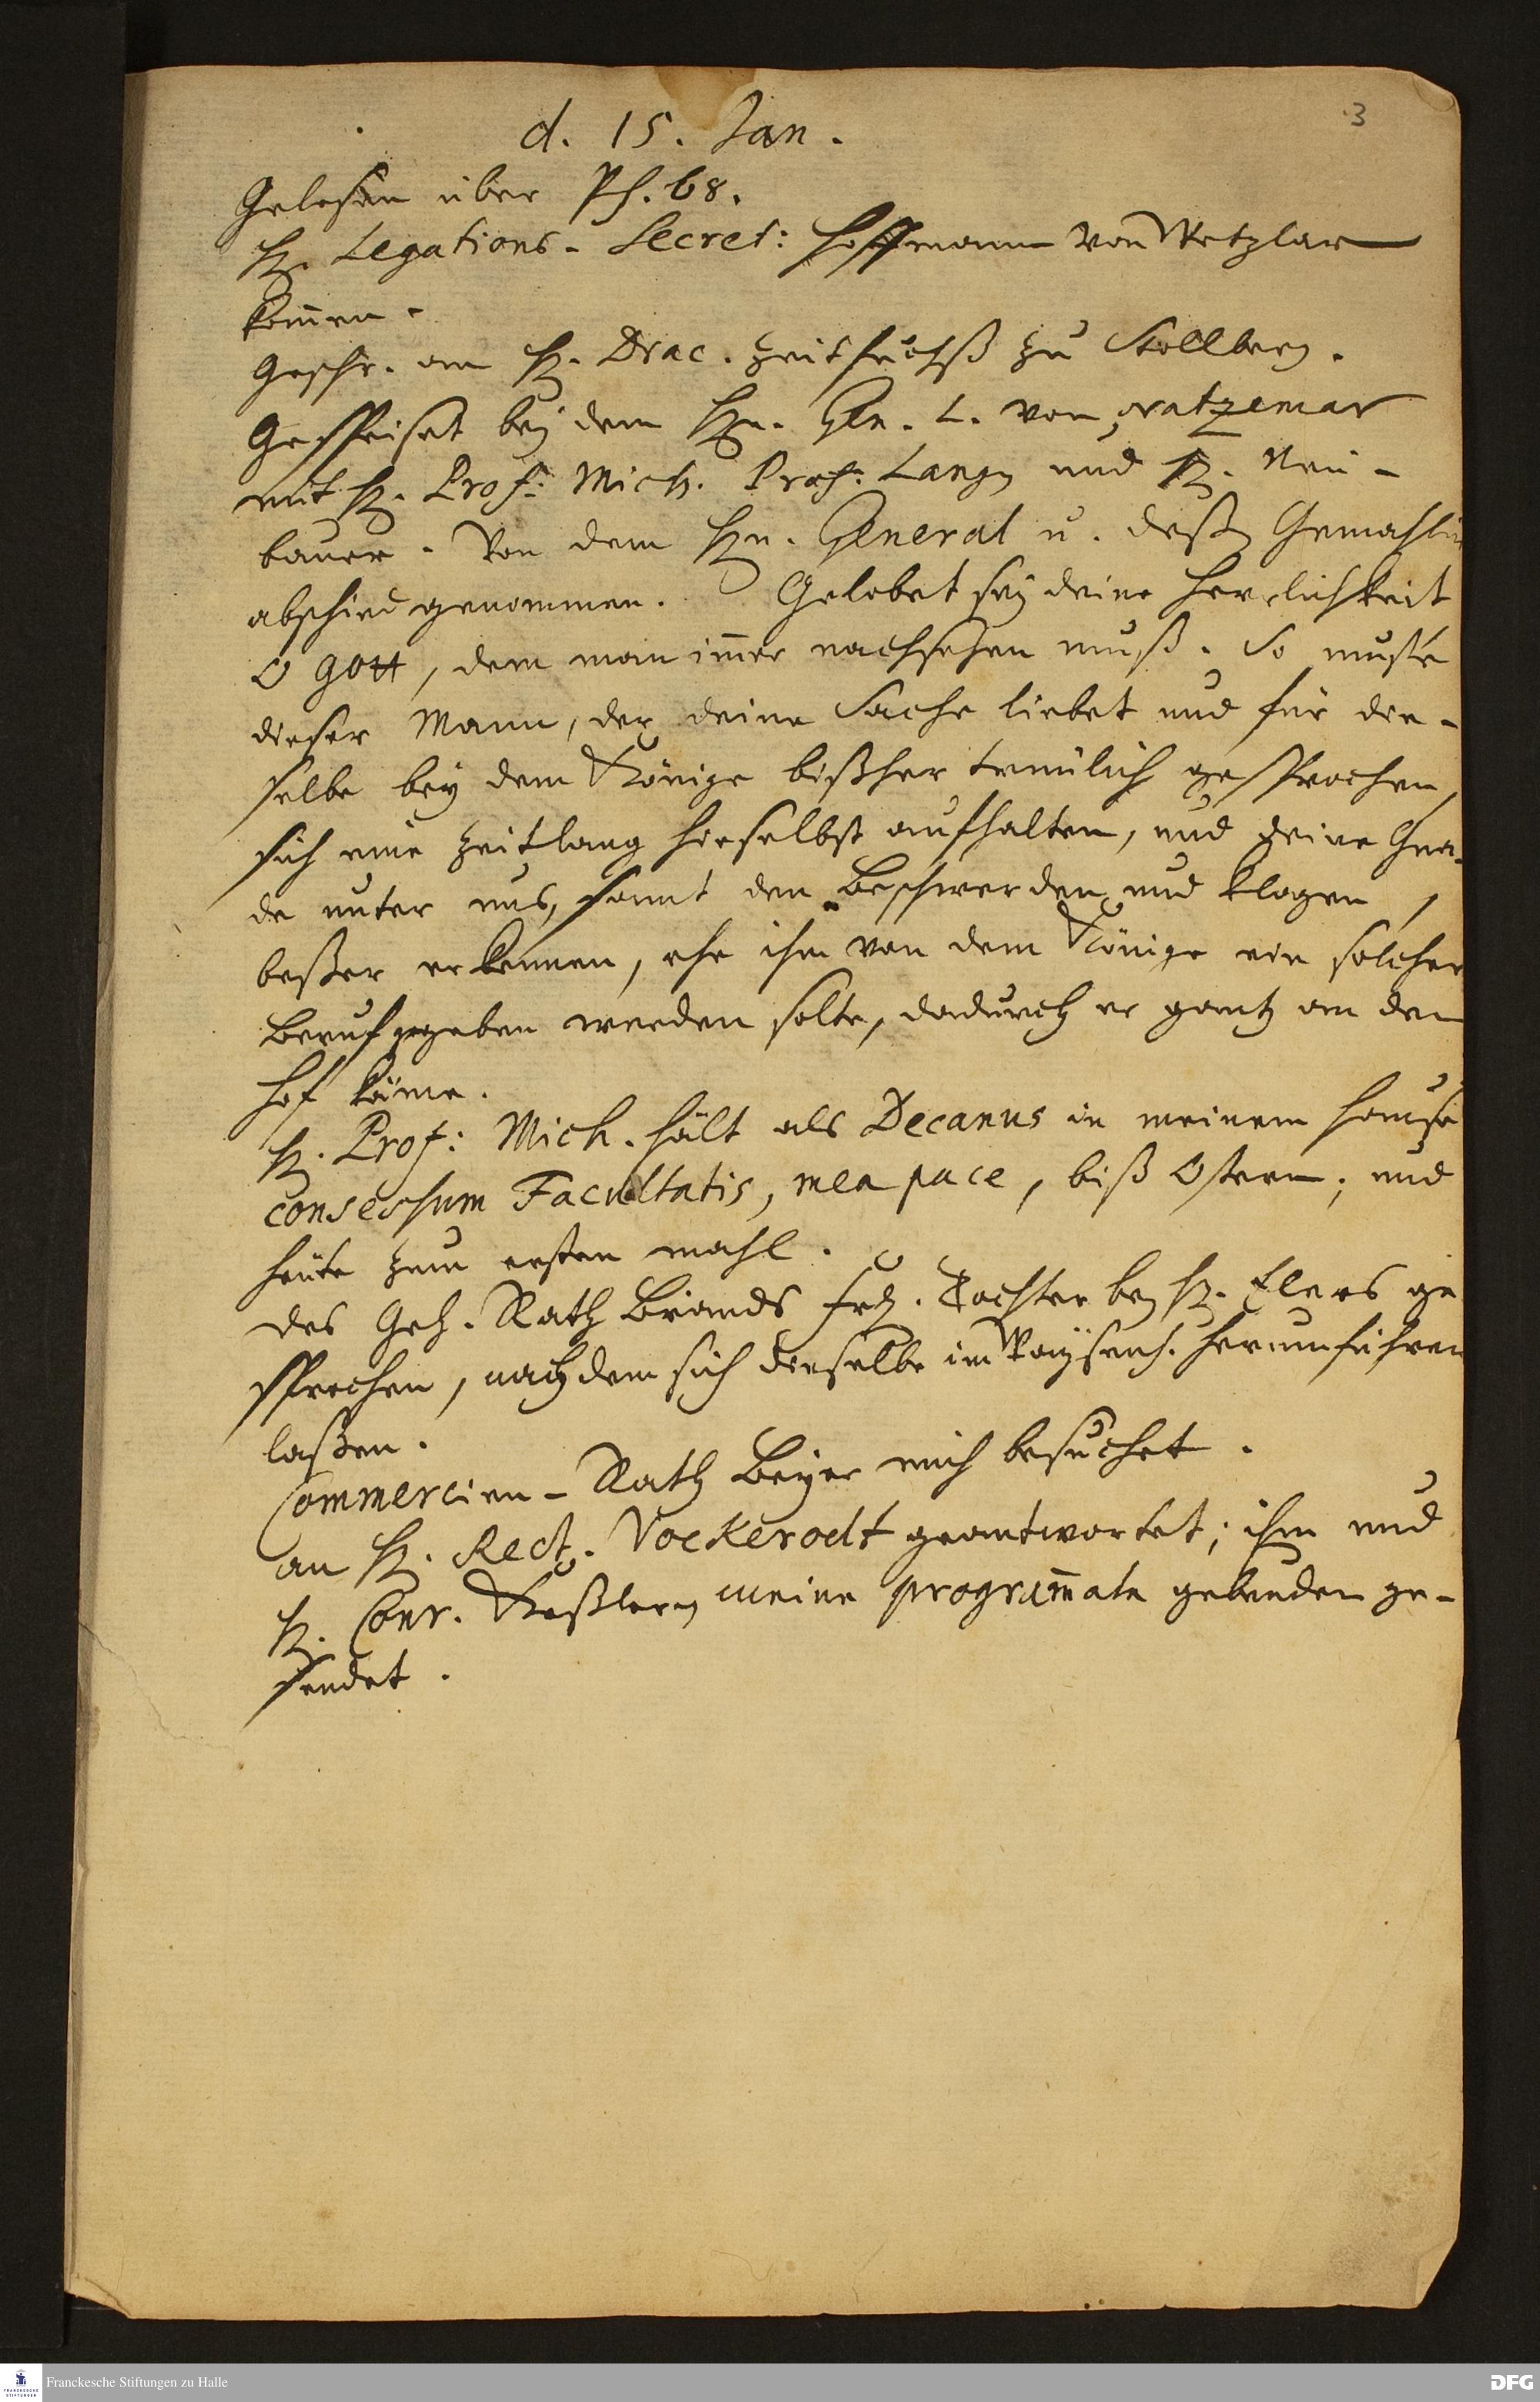 3
d. 15. Jan.
Gelesen über Ps. 68.
H. Legations-Secret: Hoffmann von Wetzlar
kom̄en.
Geschr. an H. Diac. Zeitfuchß zu Stollberg.
Gespeiset bey dem Hn. Gen. L. von Natzemar
mit H. Prof: Mich. Prof: Langen und H. Neu-
bauer. Von dem Hn. General u. deßen Gemahlin
abschied genommen. Gelobet sey deine Herrlichkeit
O Gott, dem man im̄er nachsehen muß. So muste
dieser Mann, der deine Sache liebet und für die-
selbe bey dem Könige bißher treulich gesprochen,
sich eine zeitlang hieselbst aufhalten, und deine Gna-
de unter uns, samt den Beschwerden und klagen,
beßer erkennen, ehe ihm von dem Könige ein solcher
Beruf gegeben werden solte, dadurch er gantz an den
Hof käme.
H. Prof: Mich. hält als Decanus in meinem Hause
consessum Facultatis, mea pace, biß Ostern; und
heute zum ersten mahl.
Des Geh. Rath Brands Frl. Tochter bey H. Elers ge
sprochen, nachdem sich dieselbe im Waysenh. herumführen
laßen.
Commercien-Rath Beyer mich besuchet.
an H. Rect. Vockerodt geantwortet; ihm und
H. Conr. Keßlern meine program̄ata gebunden ge-
sendet.
Franckesche Stiftungen zu Halle
FRANCKESCHE
STIFTUNGEN
DFG